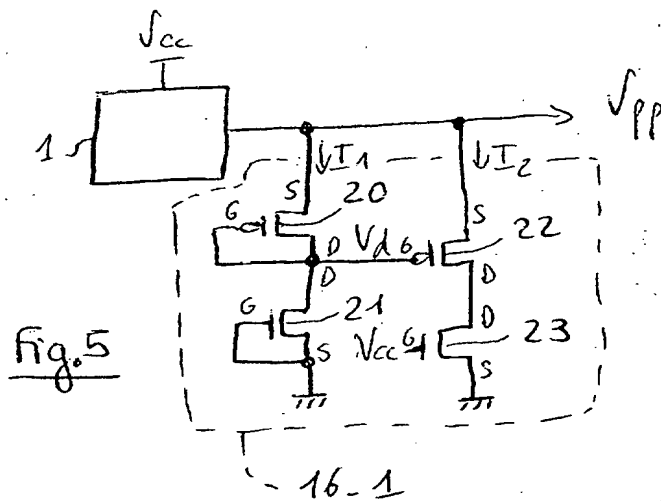 Vcc
1
Vpp
I1
I2
S
G
20
S
D
Vd
G
22
D
D
G
21
D
S
Vcc
G
23
S
Fig.5
16_1